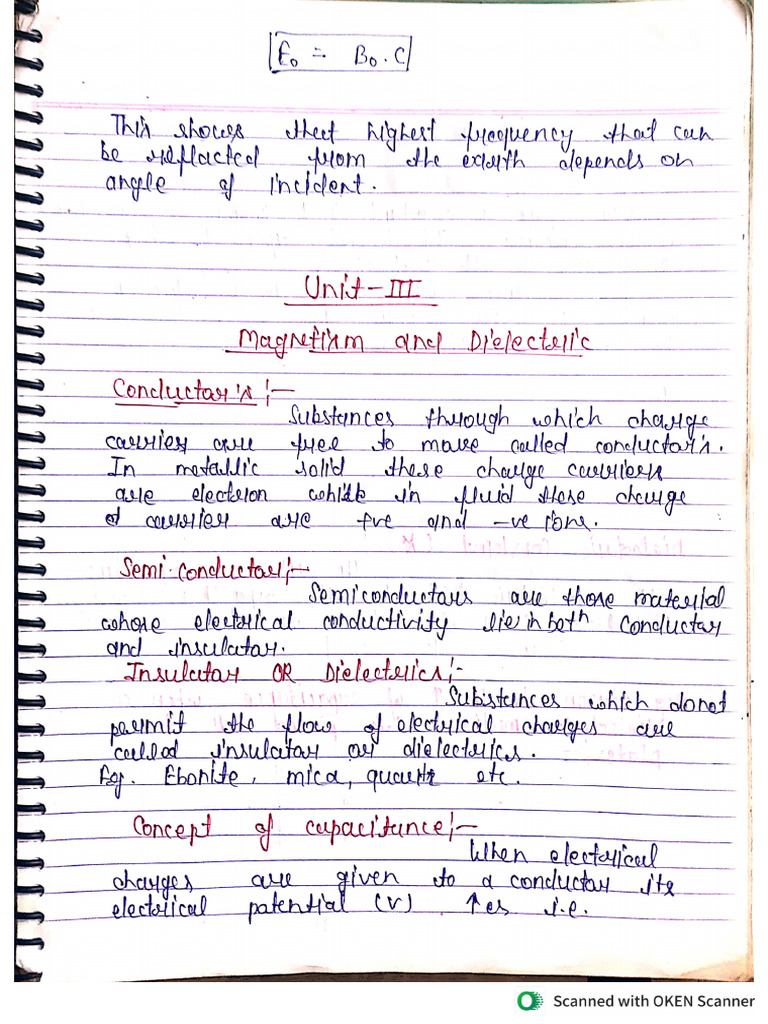 E₀ = B₀.C
This shows that highest frequency that can
be reflacted from the exarth depends on
angle of incident.
Unit-III
Magnetism and Dielectric
Conductor's :-
Substances through which charge
carries are free to move called conductor's.
In metallic solid these charge carriers
are electron while in fluid these charge
carrier are +ve and -ve ions.
Semi-conductor :-
Semiconductors are those material
whose electrical conductivity lie in betn conductor
and insulator.
Insulator OR Dielectrics :-
Substances which donot
permit the flow of electrical charges are
called insulator or dielectrics.
Eg. Ebonite, mica, quartz etc.
Concept of capacitance :-
When electrical
charges are given to a conductor its
electrical potential (V) ↑es i.e.
Scanned with OKEN Scanner